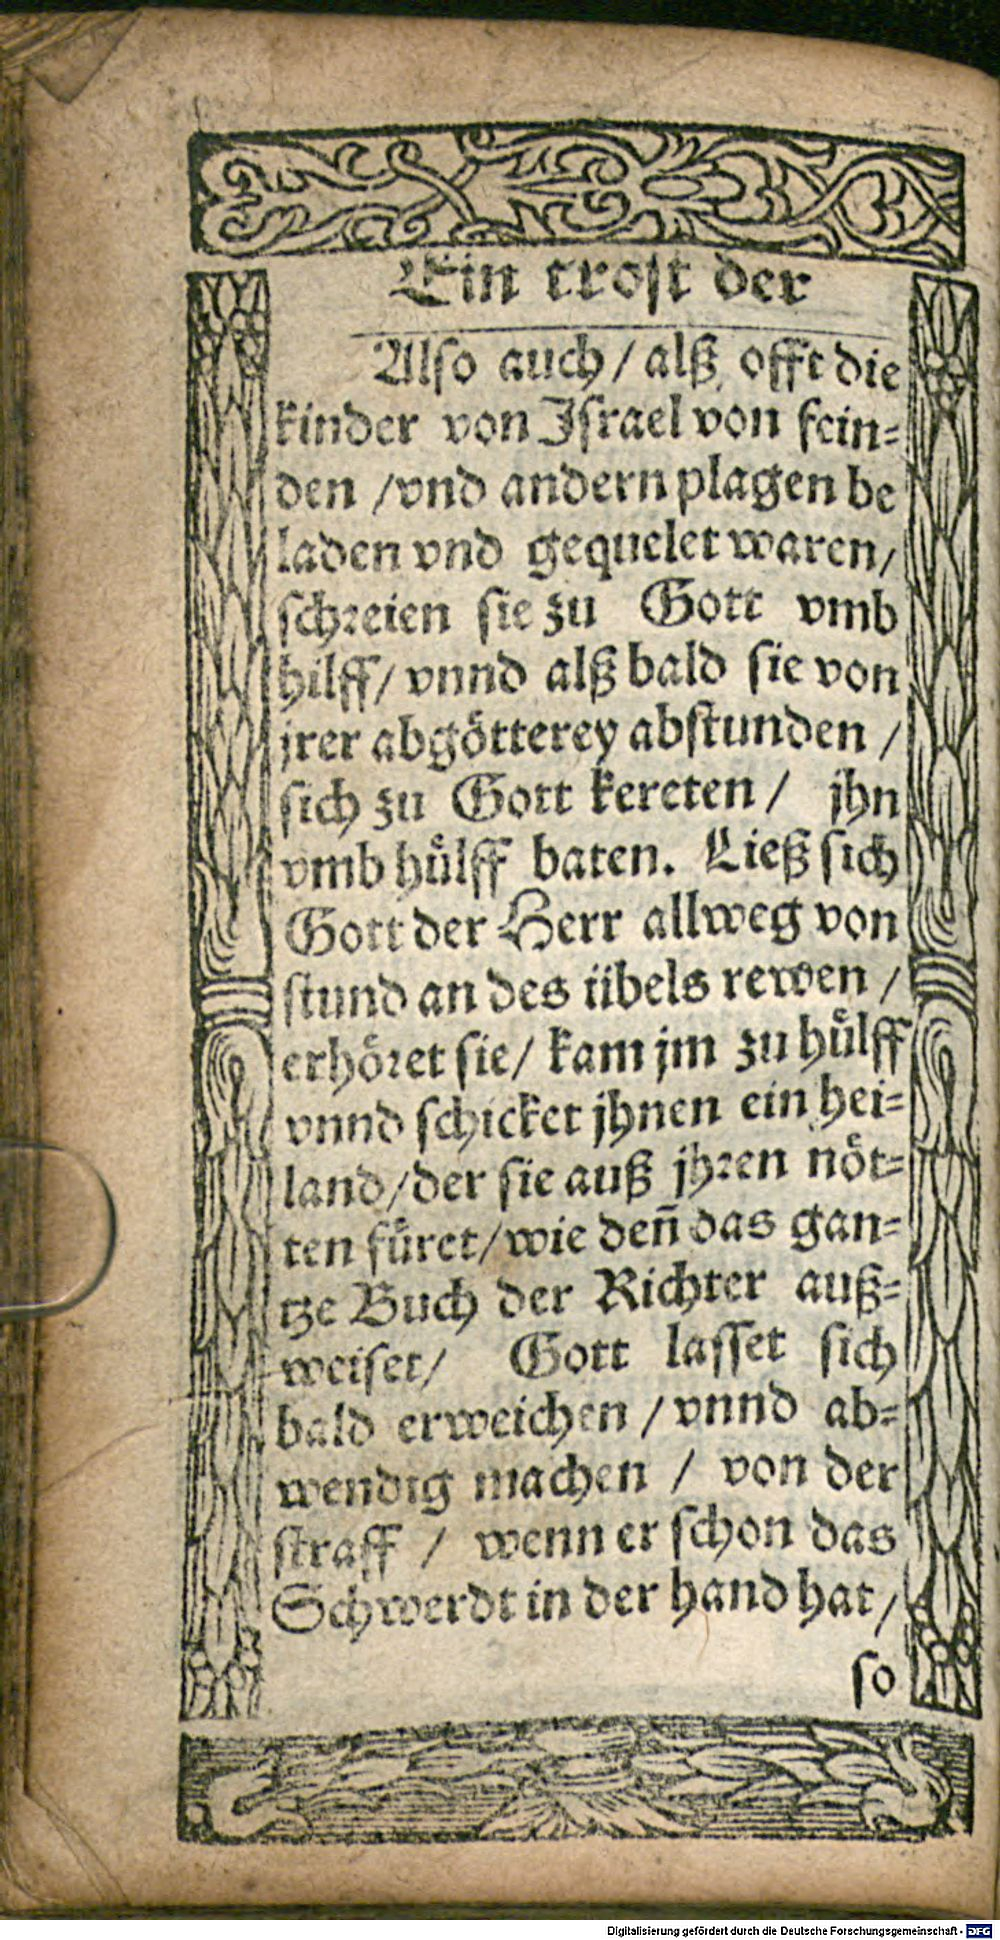 Ein trost der
Also auch / alß offt die
kinder von Israel von fein=
den / vnd andern plagen be
laden vnd gequelet waren /
schreien sie zu Gott vmb
hilff / vnnd alß bald sie von
jrer abgötterey abstunden /
sich zu Gott kereten / jhn
vmb hülff baten. Ließ sich
Gott der Herr allweg von
stund an des übels rewen /
erhöret sie / kam jm zu hülff
vnnd schicket jhnen ein hei=
land / der sie auß jhren nöt=
ten füret / wie deñ das gan=
tze Buch der Richter auß=
weiset / Gott lasset sich
bald erweichen / vnnd ab=
wendig machen / von der
straff / wenn er schon das
Schwerdt in der hand hat /
so
Digitalisierung gefördert durch die Deutsche Forschungsgemeinschaft - DFG